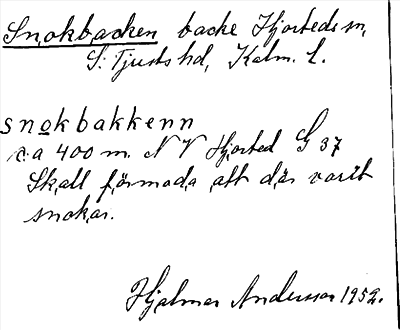 Snokbacken backe Hjorteds sn,
S: Tjusts hd, Kalm. l.
snokbakkenn
ca 400 m. N V Hjorted G 37
Skall förmoda att där varit
snokar.
Hjalmar Andersson 1952.